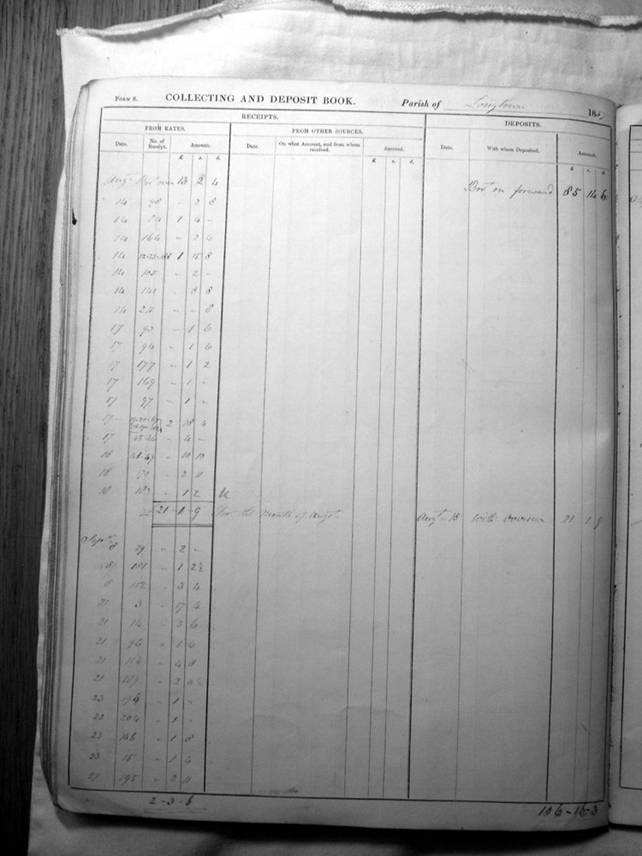 Form 8. COLLECTING AND DEPOSIT BOOK. Parish of Longtown 185
RECEIPTS. DEPOSITS.
FROM RATES. FROM OTHER SOURCES.
Date. No. of Receipt. Amount. Date. On what Account, and from whom received. Amount. Date. With whom Deposited. Amount.
£ s. d. £ s. d. £ s. d.
Augt 13 2 4 Brot on forward 85 14 6
14 98 - 2 8
14 84 1 4 -
14 164 - 2 4
14 1 15 8
14 105 - 2 -
14 141 8 8
14 24 - - 8
17 93 - 1 6
17 94 - 1 6
17 177 - 1 2
17 169 - 1 -
17 97 - 1 -
17 2 18 4
17 - 4 -
18 - 10 10
18 2 11
18 1 2
21 - 1 - 9 For the Month of Augst Augt 18 With Overseer 21 1 9
Sept
8 29 - 2 -
151 - 1 2½
8 152 - 3 4
21 3 - 7 4
21 14 - 3 6
21 94 - 1 6
21 114 - 4 8
21 159 - 2
22 - 1 -
22 204 - 1 -
23 - 1 8
23 15 - 1 4
27 195 - 2 11
2-3-6 106-16-3